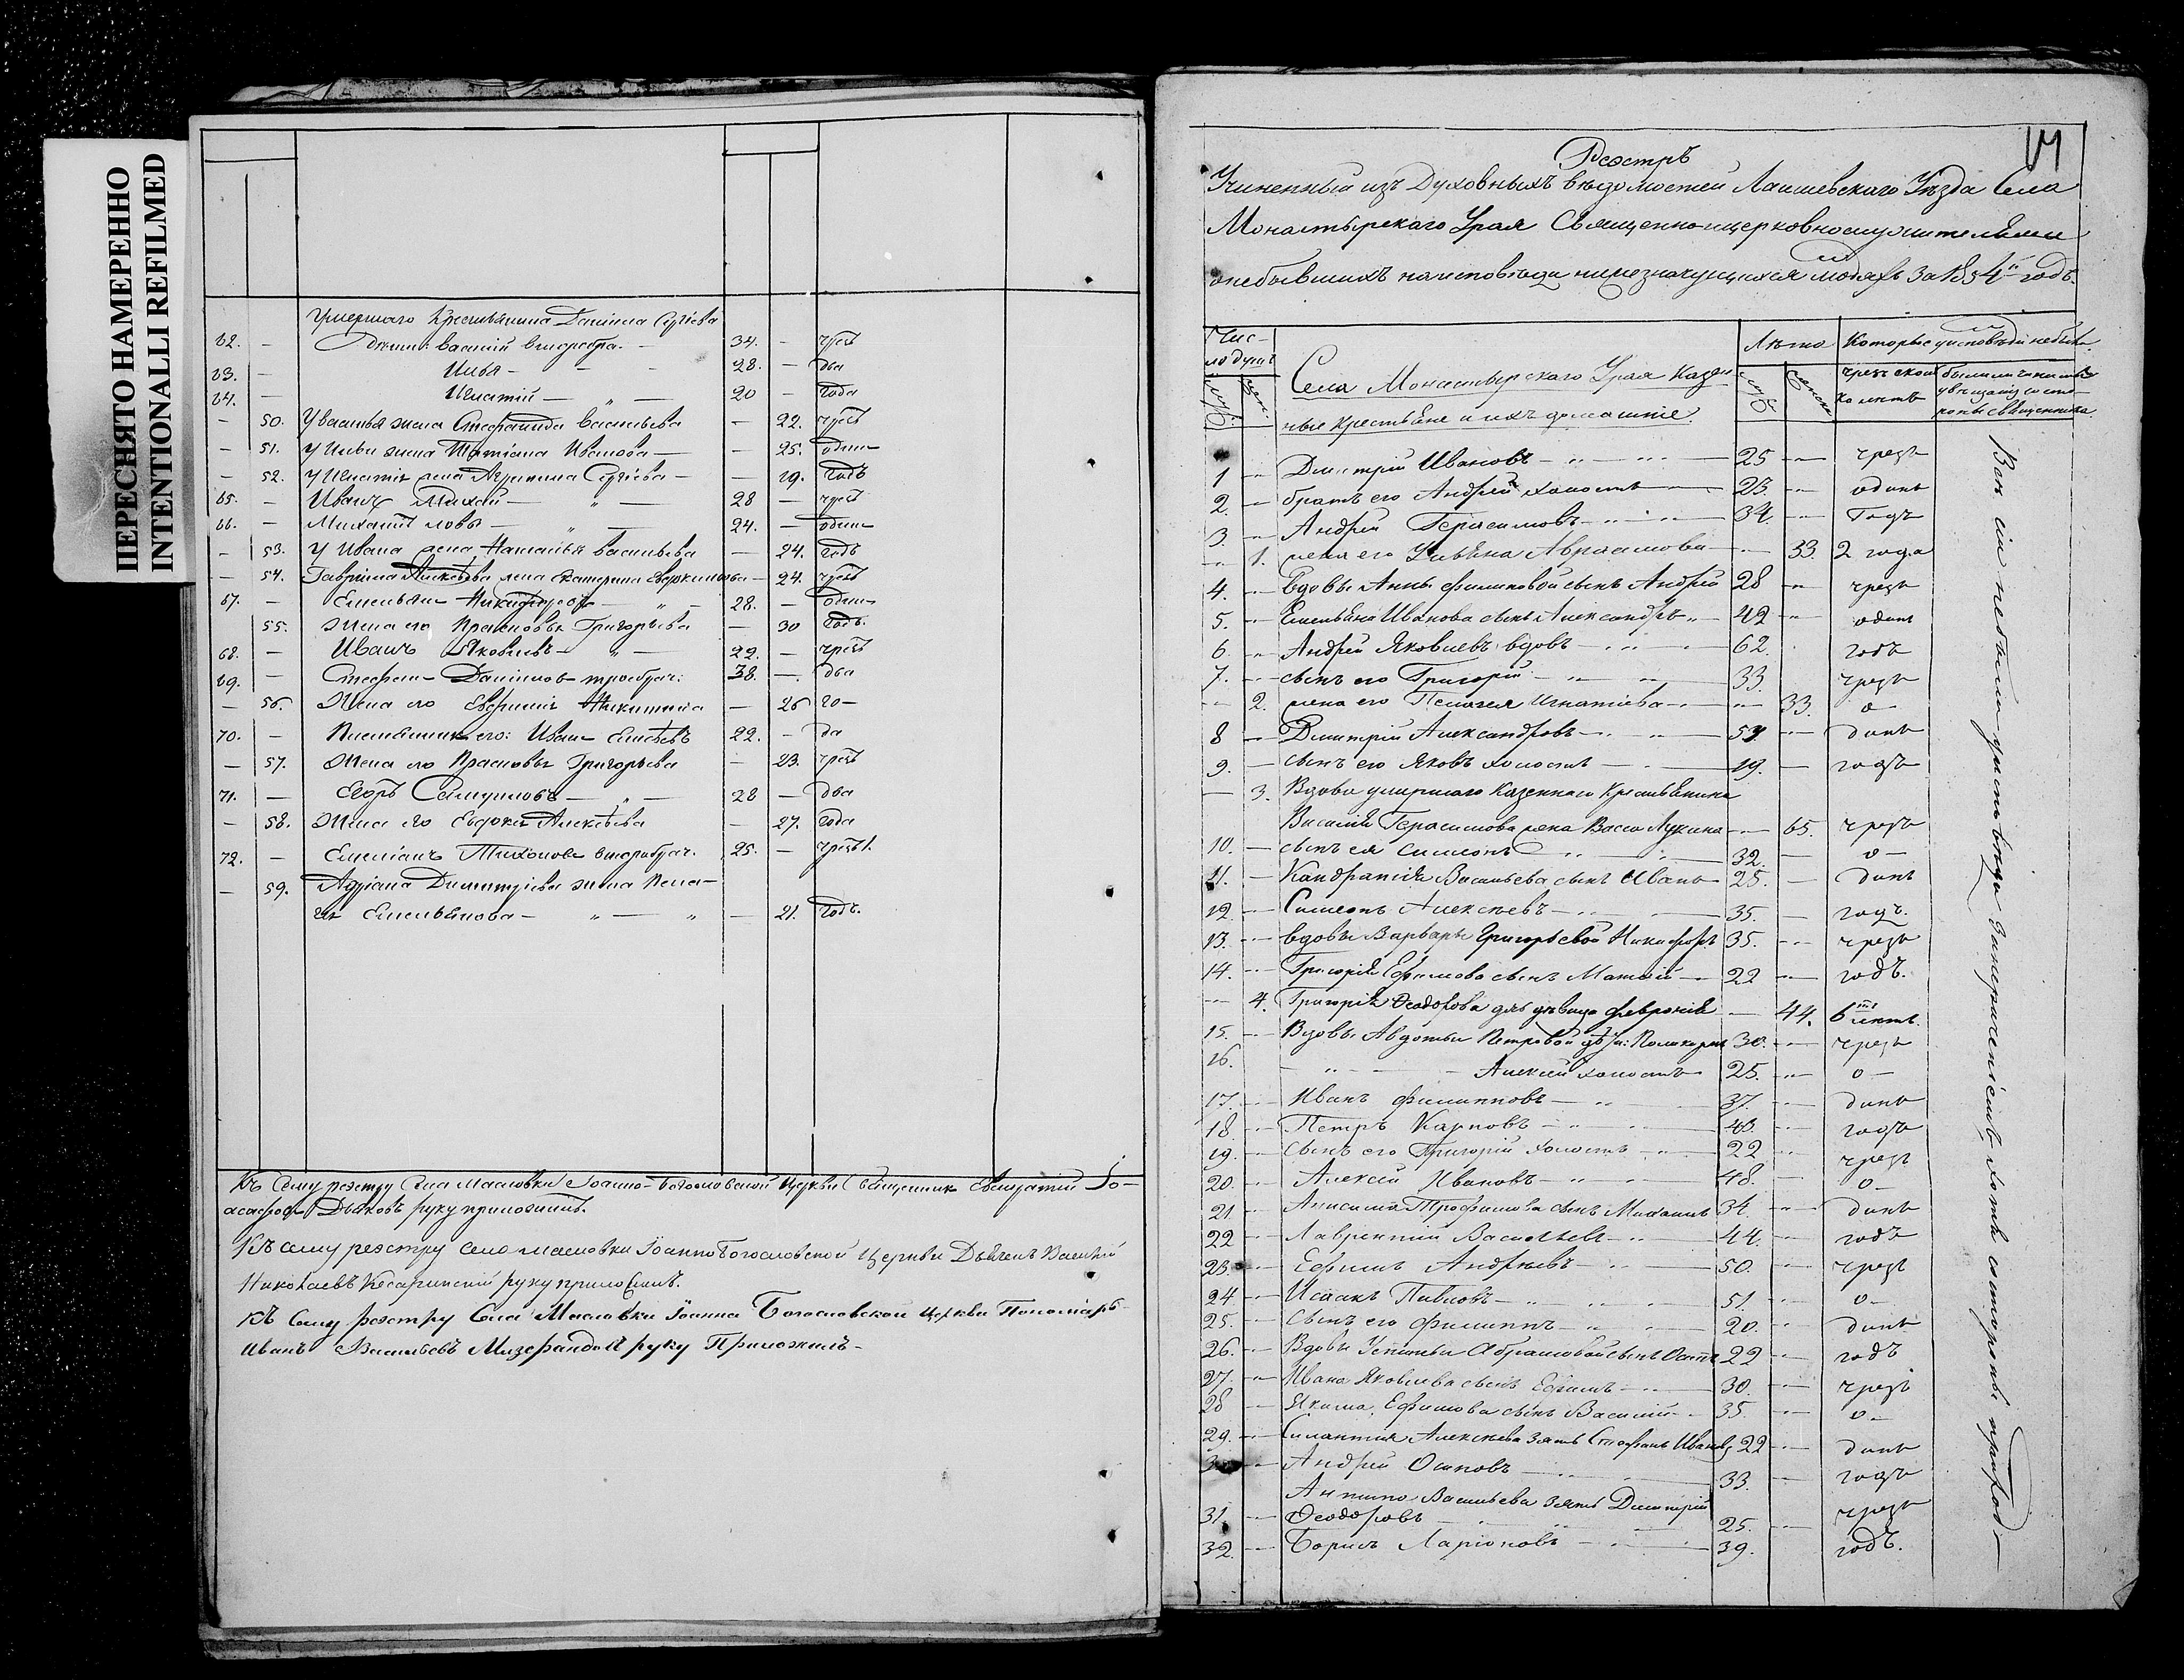 ПЕРЕСНЯТО НАМЕРЕННО
INTENTIONALLI REFILMED
умершаго Крестьянина Данiила Сергѣева
62. — дѣти: Василiй второбра. — 34. — чрезъ
63. — Илья — — 28. — два
64. — Игнатiй — " — 20 — года
— 50. У Василья жена Стефанида Васильева — 22. чрезъ
— 51. У Ильи жена Татiана Иванова — — 25. одинъ
— 52. У Игнатiя жена Агрипина Сергѣева — — 19. годъ
65. — Иванъ — " — 28 — чрезъ
66. — Михаилъ — " — 24. — одинъ
— 53. У Ивана жена Наталья Васильева — 24. годъ
— 54. Гаврiила Алексѣева жена Екатерина — 24. чрезъ
67. — Емельянъ Никифоровъ — " — 28. — одинъ
55. Жена его Прасковья Григорьева — 30 годъ.
68. — Иванъ Яковлевъ — " — 22. — чрезъ
69. — Стефанъ Данiиловъ троебрач: 38. — два
— 56. Жена его Евфимiя Никитина — 26 го—
70. — Племянникъ его: Иванъ 22. — да
— 57. Жена его Прасковья Григорьева — 23. чрезъ
71. — Егоръ Самуиловъ — " — 28 — два
— 58. Жена его Евдокiя Алексѣева — 27. года
72. — Емелiанъ Тихоновъ второбрач. 25. — чрезъ 1.
— 59. Адрiана Димитрiева жена Пела—
гѣя Емельянова — " — " — 21. годъ.
Къ сему реэстру села Масловки Iоанно-Богословской Церкви Священник Iо—
асафовъ Дьяковъ руку приложилъ.
Къ сему реэстру села Масловки Iоанно Богословской Церкви Дьяченъ Василiй
Николаевъ Кесаринскiй руку приложилъ.
Къ сему реэстру Села Масловки Iоанна Богословской церкви Пономарь
Иванъ Васильевъ руку Приложилъ—
Реэстръ
Учиненный изъ Духовныхъ вѣдомостей Лаишевскаго Уѣзда Села
Монастырскаго Урая Священно-и-церковнослужителями
о небывшихъ на исповѣди нижезначущихся людяхъ за 1854й годъ.
Чис-
ло душъ
Села Монастырскаго Урая Казен
ные крестьяне и ихъ домашнiе.
Лѣта
Которые у исповѣди небыли
чрезъ сколь
ко лѣтъ
1 — Димитрiй Ивановъ — 25 — чрезъ
2. — братъ его Андрей холостъ — 23. — одинъ
3. — Андрей Герасимовъ — 34. — Годъ
— 1. жена его Ульяна Авраамова — 33. 2 года
4. — Вдовы Анны Филиповой сынъ Андрей 28 — чрезъ
5. — Емельяна Иванова сынъ Александръ — 42 — одинъ
6. — Андрей Яковлевъ вдовъ — 62. годъ
7. — сынъ его Григорiй — 33. чрезъ
— 2. жена его Пелагея Игнатiева — — 33. о—
8 — Димитрiй Александровъ — 59. — динъ
9. — сынъ его Яковъ холостъ — 19. — годъ
— 3. Вдова умершаго Казеннаго Крестьянина
Василiя Герасимова жена Васса Лукина — 65. чрезъ
10. — сынъ ея Симеонъ — 32. — о—
11. — Кандратiя Васильева сынъ Иванъ — 25. — динъ
12 — Симеонъ Алексѣевъ — 35. — годъ.
13. — вдовы Варвары Григорьевой Никифоръ 35. — чрезъ
14. — Григорiя Ефимова сынъ Матвѣй — 22 — годъ.
— 4. Григорiя Ѳеодорова дочь дѣвица Февронiя — 44. 6ть лѣтъ.
15. — Вдовы Авдотьи Петровой дѣти: Поликарпъ 30. — чрезъ
16. — Алексей холостъ 25. — о—
17. — Иванъ Филипповъ — 37. — динъ
18. — Петръ Карповъ — 43. — годъ
19. — сынъ его Григорiй холостъ — 22 — чрезъ
20. — Алексей Ивановъ — 48. — о—
21. — Анисима Трофимова сынъ Михаилъ 34. — динъ
22 — Лаврентiй Васильевъ — 44. — годъ
23. — Ефимъ Андрѣевъ — 50. — чрезъ
24 — Исаакъ Павловъ — 51. — о—
25. — Сынъ его Филиппъ — 20. — динъ
26. — Вдовы Устиньи Абрамовой сынъ Осипъ 22 — годъ
27. — Ивана Яковлева сынъ Ефимъ — 30. — чрезъ
28 — Якима Ефимова сынъ Василiй — 35. — о—
29. — Силантiя Алексѣева зять Стефанъ Ивановъ 22 — динъ
3 — Андрей Осиповъ — 33. — годъ
Антипа Васильева зять Димитрiй
31. — Ѳеодоровъ — 25. — чрезъ
32. — Борисъ Ларiоновъ — 39. годъ.
Всѣ сiи небыли у исповѣди